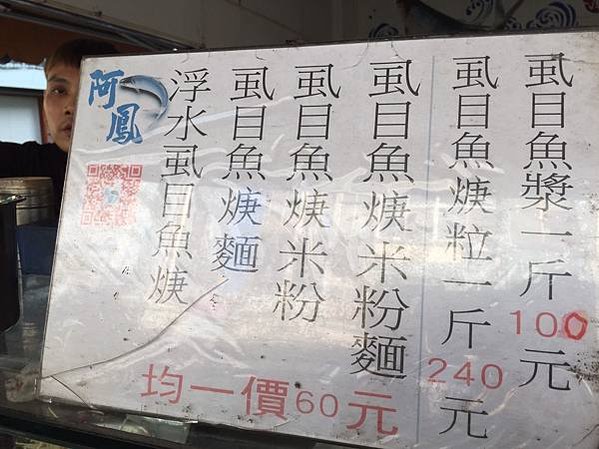 虱目魚漿一斤100元
虱目魚焿粒一斤240元
虱目魚焿米粉麵
虱目魚焿米粉
虱目魚焿麵
浮水虱目魚焿
阿鳳
均一價60元